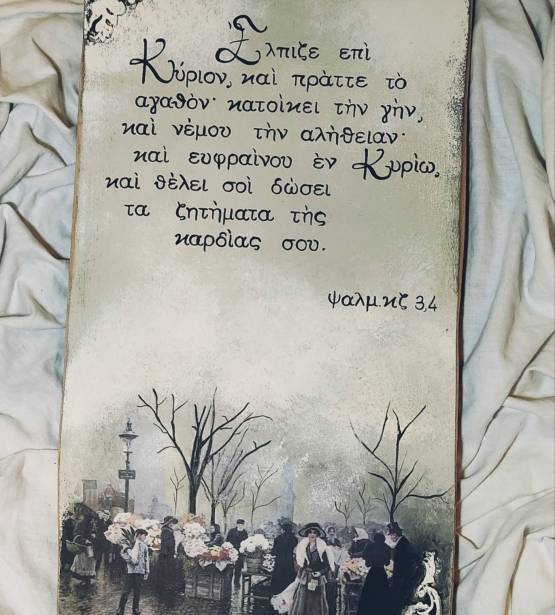 Ἔλπιζε επὶ
Κύριον, καὶ πρὰττε τὸ
αγαθὸν· κατοὶκει τὴν γὴν,
καὶ νέμου τὴν αλὴθειαν·
καὶ ευφραὶνου ὲν Κυρὶω,
καὶ θὲλει σοὶ δώσει
τα ζητὴματα τὴς
καρδὶας σου.
ψαλμ. κζ 3,4